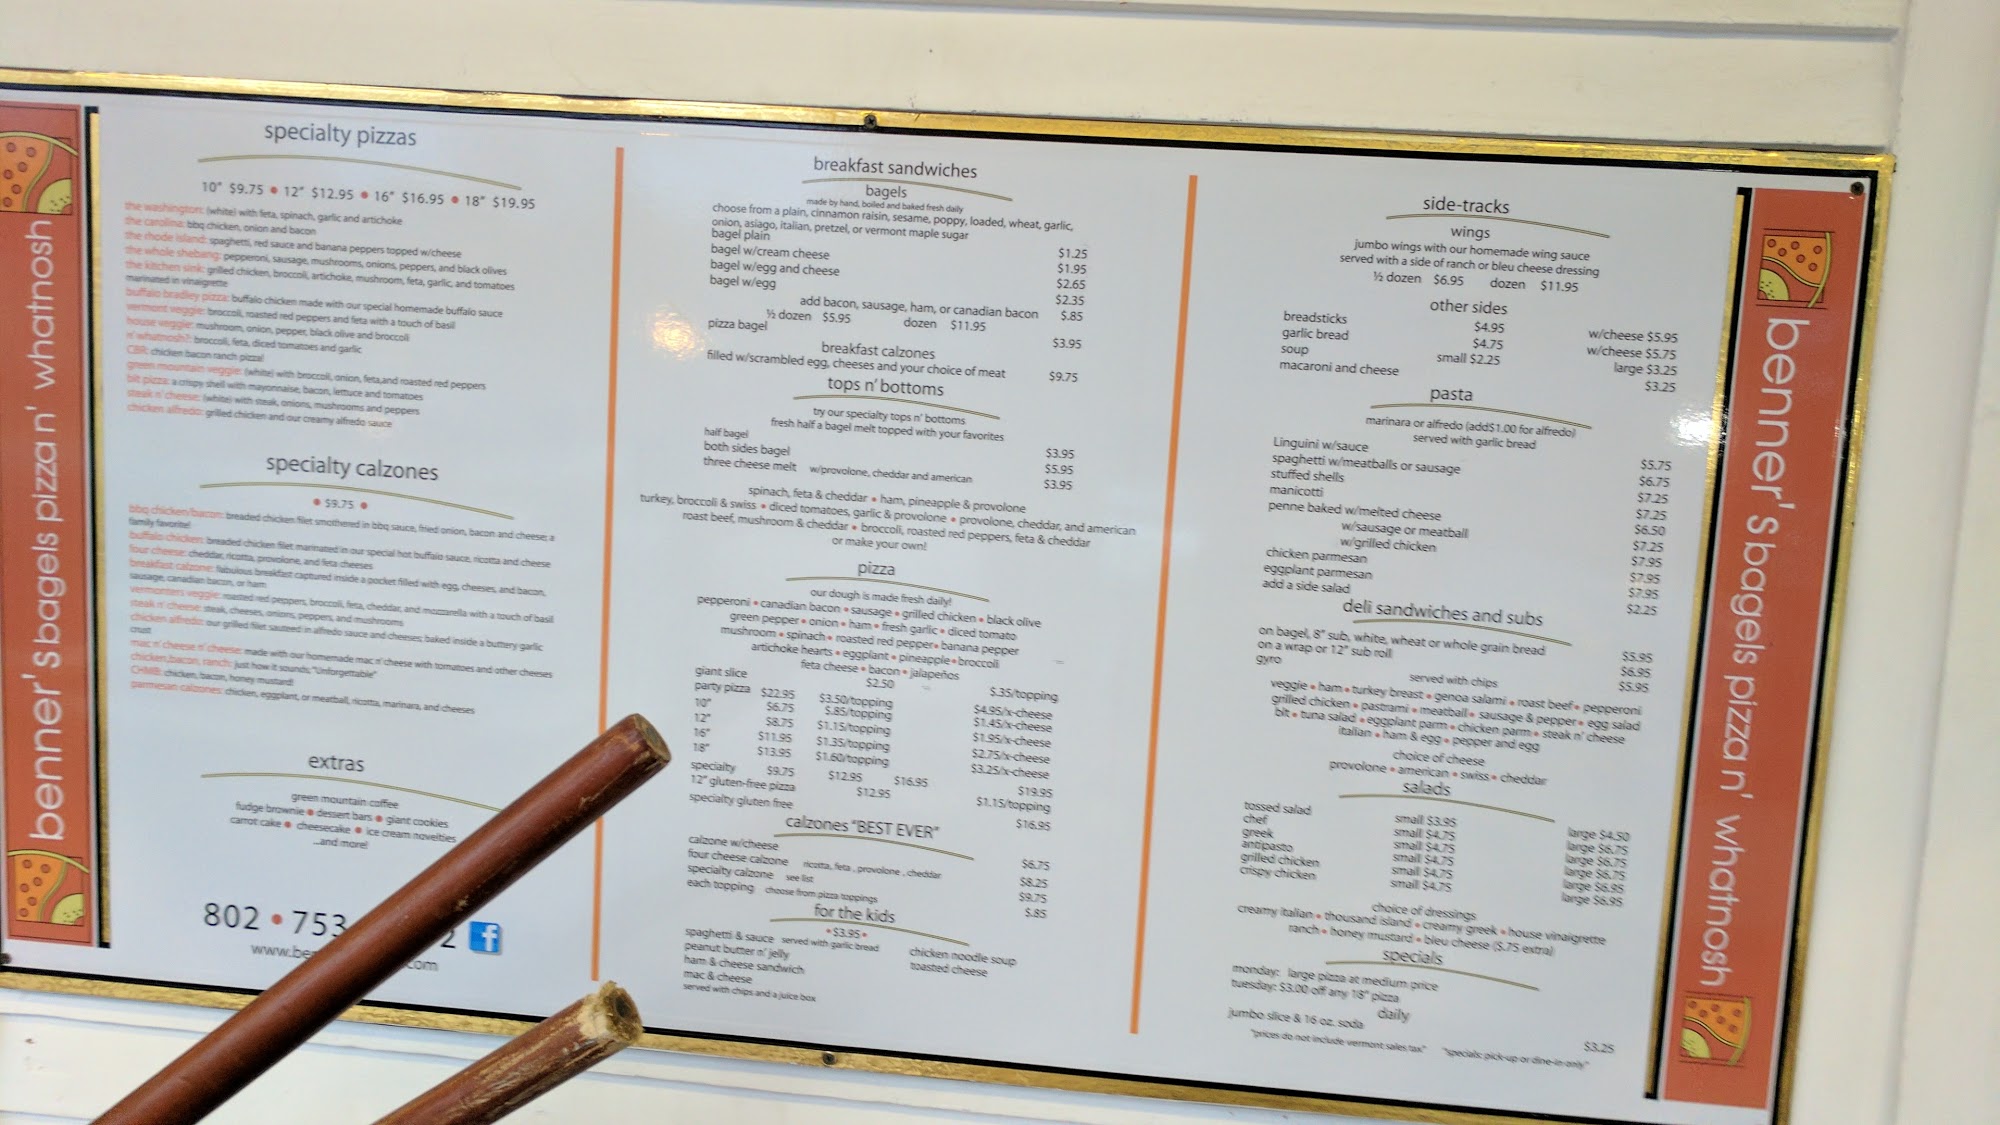 benner's bagels pizza n' whatnosh
specialty pizzas
10" $9.75 • 12" $12.95 • 16" $16.95 • 18" $19.95
the washington: (white) with feta, spinach, garlic and artichoke
the carolina: bbq chicken, onion and bacon
the rhode island: spaghetti, red sauce and banana peppers topped w/cheese
the whole shebang: pepperoni, sausage, mushrooms, onions, peppers, and black olives
the kitchen sink: grilled chicken, broccoli, artichoke, mushroom, feta, garlic, and tomatoes
marinated in vinaigrette
buffalo bradley pizza: buffalo chicken made with our special homemade buffalo sauce
vermont veggie: broccoli, roasted red peppers and feta with a touch of basil
house veggie: mushroom, onion, pepper, black olive and broccoli
n' whatnosh?: broccoli, feta, diced tomatoes and garlic
CBR: chicken bacon ranch pizza!
green mountain veggie: (white) with broccoli, onion, feta,and roasted red peppers
blt pizza: a crispy shell with mayonnaise, bacon, lettuce and tomatoes
steak n' cheese: (white) with steak, onions, mushrooms and peppers
chicken alfredo: grilled chicken and our creamy alfredo sauce
specialty calzones
• $9.75 •
bbq chicken/bacon: breaded chicken filet smothered in bbq sauce, fried onion, bacon and cheese; a
family favorite!
buffalo chicken: breaded chicken filet marinated in our special hot buffalo sauce, ricotta and cheese
four cheese: cheddar, ricotta, provolone, and feta cheeses
breakfast calzone: fabulous breakfast captured inside a pocket filled with egg, cheeses, and bacon,
sausage, canadian bacon, or ham
vermonters veggie: roasted red peppers, broccoli, feta, cheddar, and mozzarella with a touch of basil
steak n' cheese: steak, cheeses, onions, peppers, and mushrooms
chicken alfredo: our grilled filet sauteed in alfredo sauce and cheeses; baked inside a buttery garlic
crust
mac n' cheese n' cheese: made with our homemade mac n' cheese with tomatoes and other cheeses
chicken,bacon, ranch: just how it sounds; "Unforgettable"
CHMB: chicken, bacon, honey mustard!
parmesan calzones: chicken, eggplant, or meatball, ricotta, marinara, and cheeses
extras
green mountain coffee
fudge brownie • dessert bars • giant cookies
carrot cake • cheesecake • ice cream novelties
...and more!
802 • 753 2
www.be com
breakfast sandwiches
bagels
made by hand, boiled and baked fresh daily
choose from a plain, cinnamon raisin, sesame, poppy, loaded, wheat, garlic,
onion, asiago, italian, pretzel, or vermont maple sugar
bagel plain $1.25
bagel w/cream cheese $1.95
bagel w/egg and cheese $2.65
bagel w/egg $2.35
add bacon, sausage, ham, or canadian bacon $.85
½ dozen $5.95 dozen $11.95
pizza bagel $3.95
breakfast calzones
filled w/scrambled egg, cheeses and your choice of meat $9.75
tops n' bottoms
try our specialty tops n' bottoms
fresh half a bagel melt topped with your favorites
half bagel $3.95
both sides bagel $5.95
three cheese melt w/provolone, cheddar and american $3.95
spinach, feta & cheddar • ham, pineapple & provolone
turkey, broccoli & swiss • diced tomatoes, garlic & provolone • provolone, cheddar, and american
roast beef, mushroom & cheddar • broccoli, roasted red peppers, feta & cheddar
or make your own!
pizza
our dough is made fresh daily!
pepperoni • canadian bacon • sausage • grilled chicken • black olive
green pepper • onion • ham • fresh garlic • diced tomato
mushroom • spinach • roasted red pepper • banana pepper
artichoke hearts • eggplant • pineapple • broccoli
feta cheese • bacon • jalapeños
giant slice $2.50 $.35/topping
party pizza $22.95 $3.50/topping $4.95/x-cheese
10" $6.75 $.85/topping $1.45/x-cheese
12" $8.75 $1.15/topping $1.95/x-cheese
16" $11.95 $1.35/topping $2.75/x-cheese
18" $13.95 $1.60/topping $3.25/x-cheese
specialty $9.75 $12.95 $16.95 $19.95
12" gluten-free pizza $12.95 $1.15/topping
specialty gluten free $16.95
calzones "BEST EVER"
calzone w/cheese $6.75
four cheese calzone ricotta, feta , provolone , cheddar $8.25
specialty calzone see list $9.75
each topping choose from pizza toppings $.85
for the kids
• $3.95 •
spaghetti & sauce served with garlic bread chicken noodle soup
peanut butter n' jelly toasted cheese
ham & cheese sandwich
mac & cheese
served with chips and a juice box
side-tracks
wings
jumbo wings with our homemade wing sauce
served with a side of ranch or bleu cheese dressing
½ dozen $6.95 dozen $11.95
other sides
breadsticks $4.95 w/cheese $5.95
garlic bread $4.75 w/cheese $5.75
soup small $2.25 large $3.25
macaroni and cheese $3.25
pasta
marinara or alfredo (add$1.00 for alfredo)
served with garlic bread
Linguini w/sauce $5.75
spaghetti w/meatballs or sausage $6.75
stuffed shells $7.25
manicotti $7.25
penne baked w/melted cheese $6.50
w/sausage or meatball $7.25
w/grilled chicken $7.95
chicken parmesan $7.95
eggplant parmesan $7.95
add a side salad $2.25
deli sandwiches and subs
on bagel, 8" sub, white, wheat or whole grain bread $5.95
on a wrap or 12" sub roll $6.95
gyro $5.95
served with chips
veggie • ham • turkey breast • genoa salami • roast beef • pepperoni
grilled chicken • pastrami • meatball • sausage & pepper • egg salad
blt • tuna salad • eggplant parm • chicken parm • steak n' cheese
italian • ham & egg • pepper and egg
choice of cheese
provolone • american • swiss • cheddar
salads
tossed salad small $3.95 large $4.50
chef small $4.75 large $6.75
greek small $4.75 large $6.75
antipasto small $4.75 large $6.75
grilled chicken small $4.75 large $6.95
crispy chicken small $4.75 large $6.95
choice of dressings
creamy italian • thousand island • creamy greek • house vinaigrette
ranch • honey mustard • bleu cheese ($.75 extra)
specials
monday: large pizza at medium price
tuesday: $3.00 off any 18" pizza
daily
jumbo slice & 16 oz. soda $3.25
"prices do not include vermont sales tax" "specials: pick-up or dine-in only"
benner's bagels pizza n' whatnosh